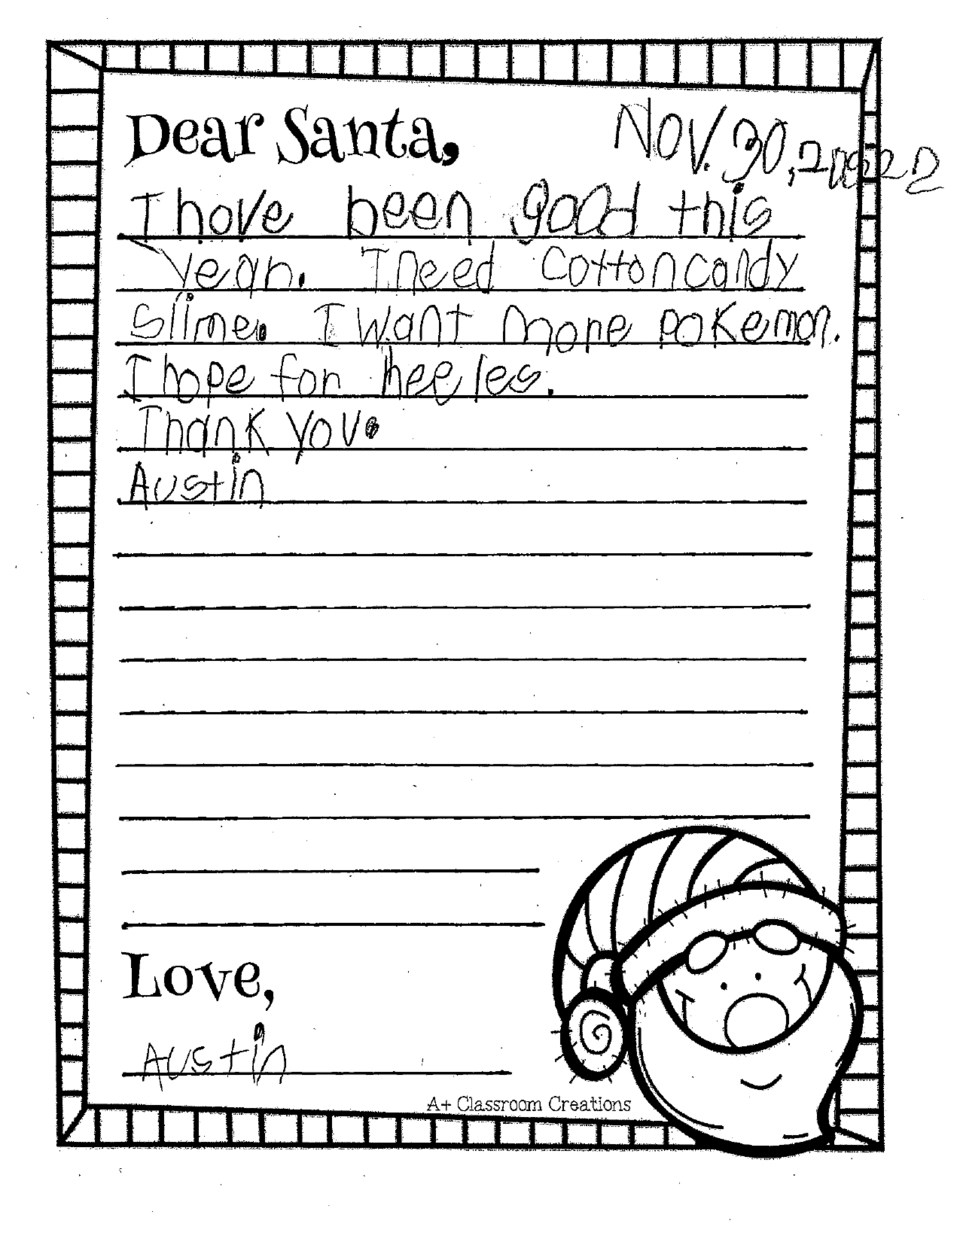 Dear Santa,
Nov. 30, 2022
I have been good this
year. I need Cottoncandy
Slime. I want more pokemon.
I hope for heeles.
Thank you.
Austin
Love,
Austin
A+ Classroom Creations